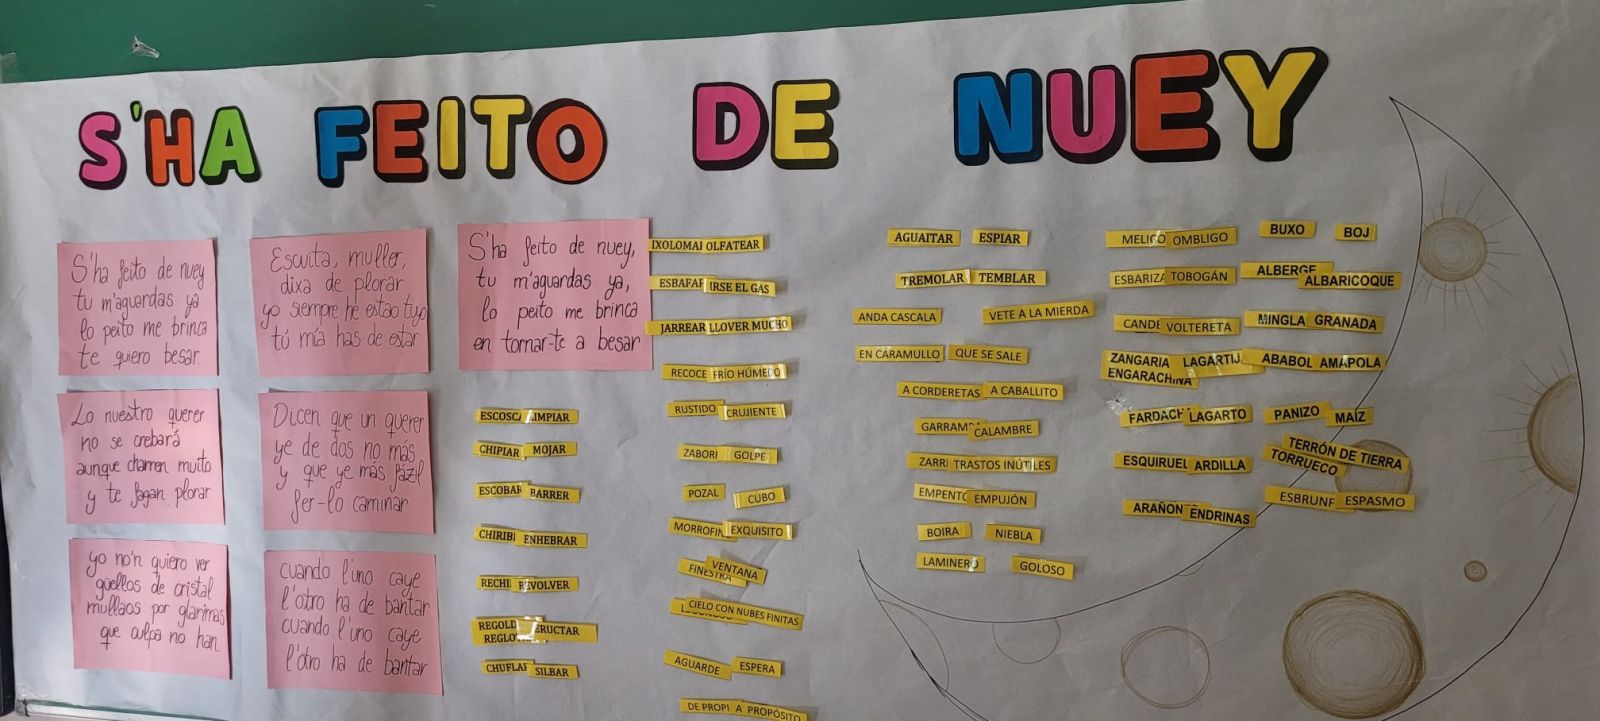 S'HA FEITO DE NUEY
S'ha feito de nuey
tu m'aguardas ya
lo peito me brinca
te quiero besar.
Lo nuestro querer
no se crebará
aunque charren muito
y te fagan plorar.
yo no'n quiero ver
güellos de cristal
mullaos por glarimas
que culpa no han.
Escuita, muller,
dixa de plorar
yo siempre he estao tuyo
tú mía has de estar
Dicen que un querer
ye de dos no más
y que ye más fázil
fer-lo caminar
cuando l'uno caye
l'otro ha de bantar
cuando l'uno caye
l'otro ha de bantar
S'ha feito de nuey,
tu m'aguardas ya,
lo peito me brinca
en tornar-te a besar
LIMPIAR
CHIPIAR MOJAR
ESCOBAR BARRER
ENHEBRAR
REVOLVER
ERUCTAR
CHUFLAR SILBAR
OLFATEAR
IRSE EL GAS
JARREAR LLOVER MUCHO
FRÍO HÚMEDO
RUSTIDO CRUJIENTE
GOLPE
POZAL CUBO
EXQUISITO
FINESTRA VENTANA
CIELO CON NUBES FINITAS
AGUARDE ESPERA
A PROPÓSITO
AGUAITAR ESPIAR
TREMOLAR TEMBLAR
ANDA CASCALA VETE A LA MIERDA
EN CARAMULLO QUE SE SALE
A CORDERETAS A CABALLITO
CALAMBRE
TRASTOS INÚTILES
EMPUJÓN
BOIRA NIEBLA
LAMINERO GOLOSO
MELICO OMBLIGO
TOBOGÁN
VOLTERETA
ZANGARIA
ENGARACHINA
LAGARTO
ESQUIRUEL ARDILLA
ARAÑON ENDRINAS
BUXO BOJ
ALBERGE ALBARICOQUE
MINGLA GRANADA
ABABOL AMAPOLA
PANIZO MAÍZ
TERRÓN DE TIERRA
TORRUECO
ESPASMO